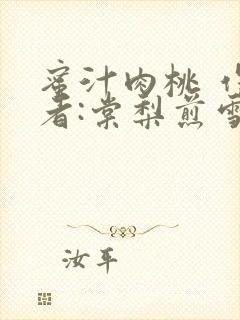 蜜汁肉桃 作
者:棠梨煎雪
汝平